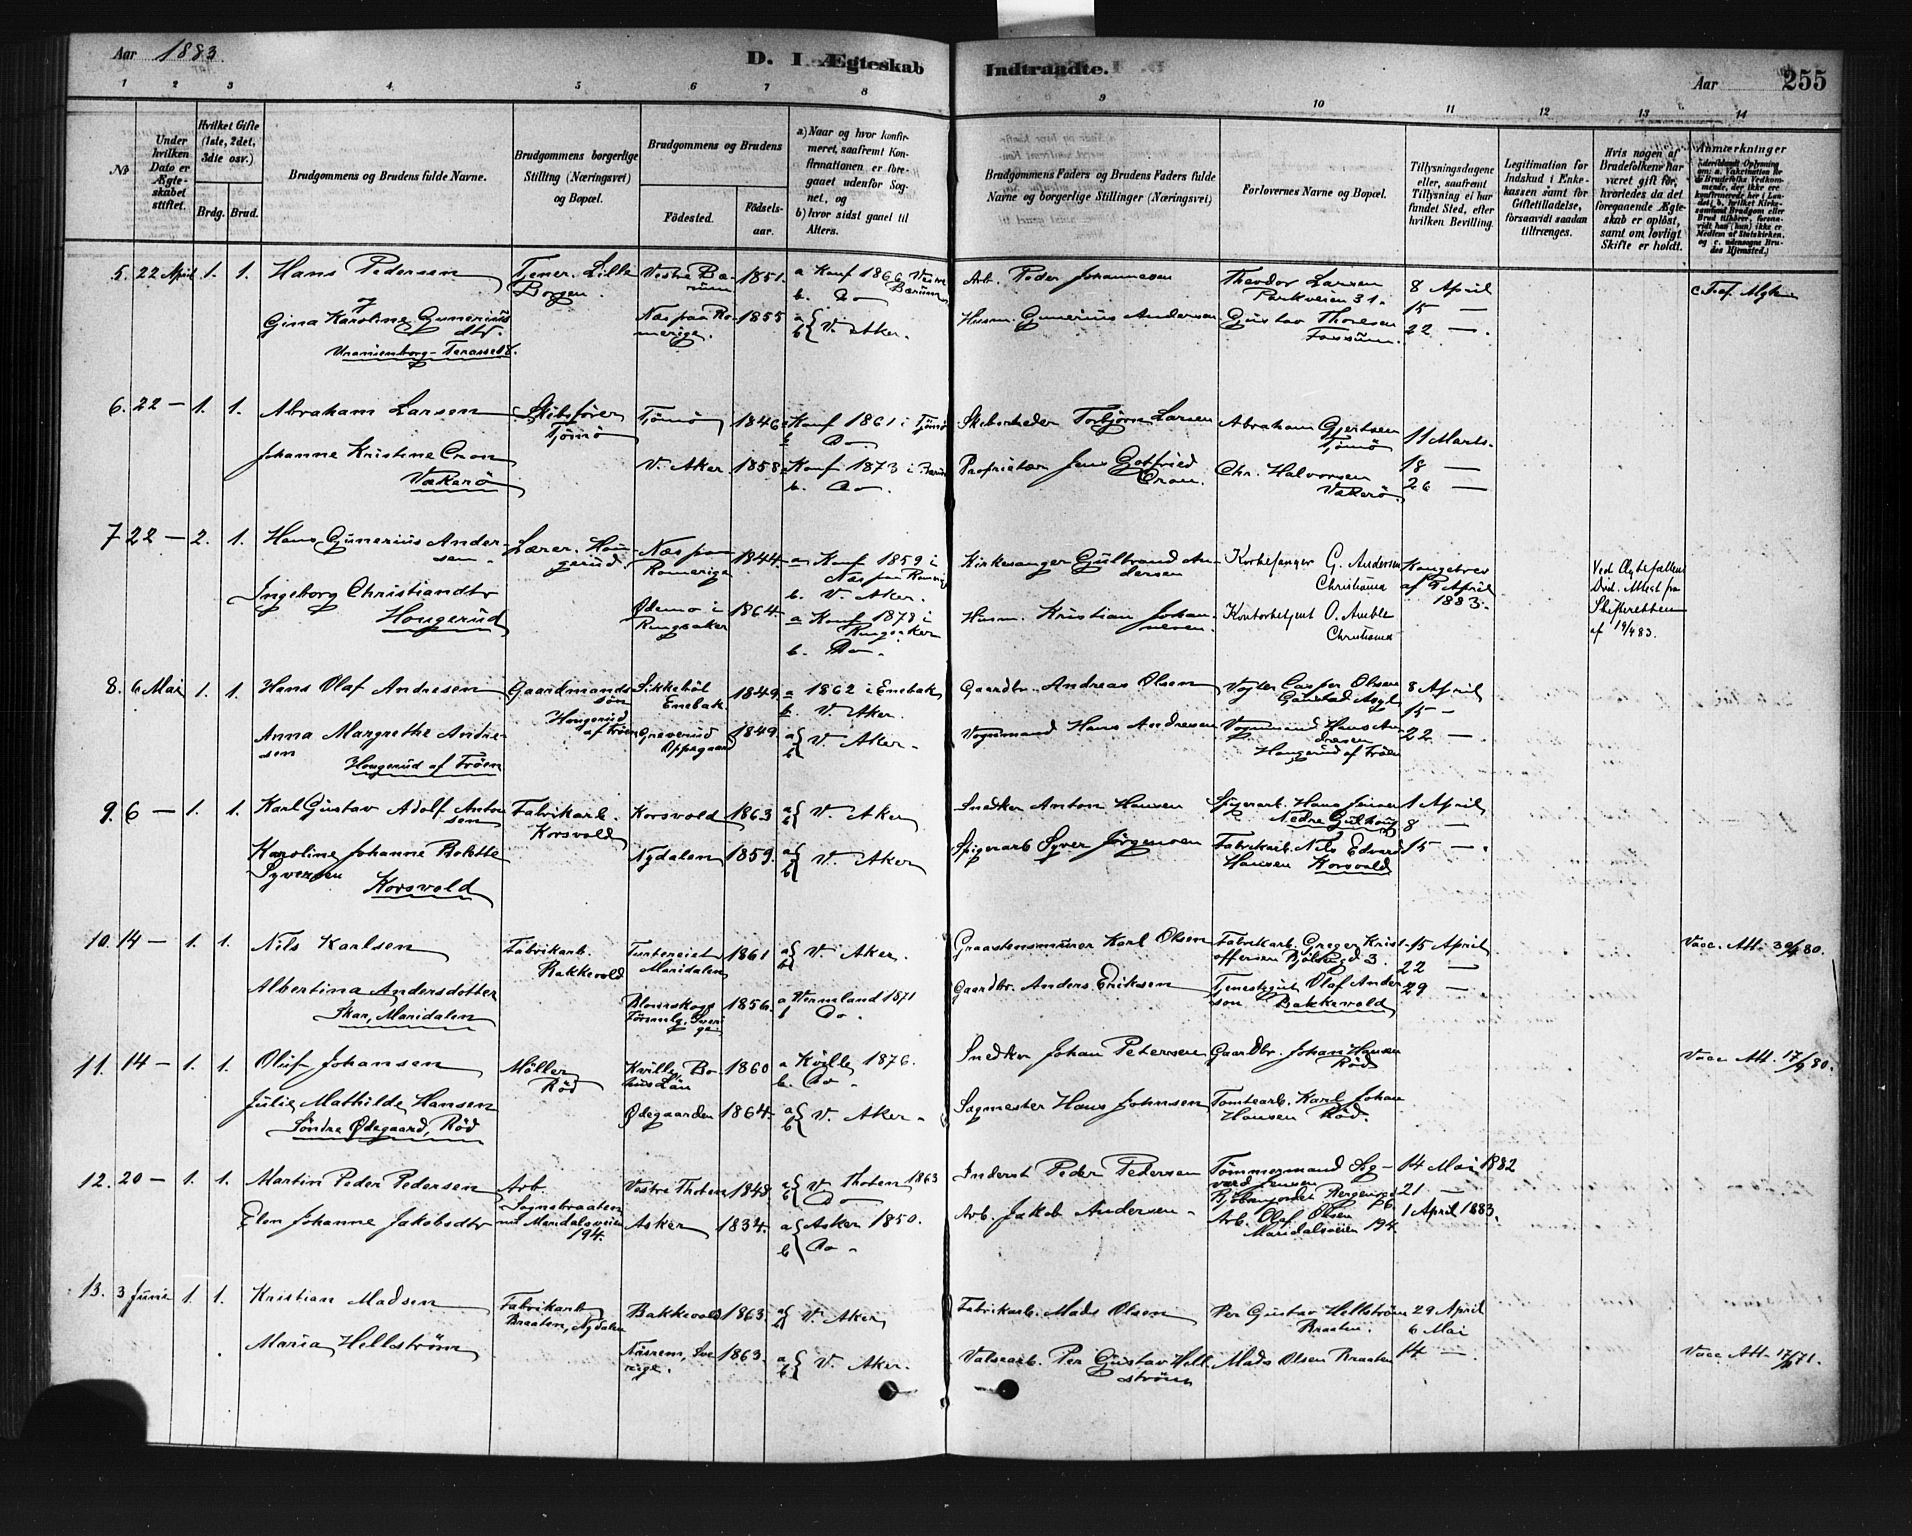 Aar 1883.
D. I. Ægteskab Indtraadte.
Aar 255
1 2 3 4 5 6 7 8 9 10 11 12 13 14
No
Under hvilken Dato er Ægteskabet stiftet.
Hvilket Gifte (1ste, 2det, 3die osv.)
Brdg. Brud.
Brudgommens og Brudens fulde Navne.
Brudgommens borgerlige Stilling (Næringsvei) og Bopæl.
Brudgommens og Brudens
Fødested. Fødselsaar.
a) Naar og hvor konfirmeret, saafremt Konfirmationen er foregaaet udenfor Sognet, og
b) hvor sidst gaaet til Alters.
Brudgommens Faders og Brudens Faders fulde Navne og borgerlige Stillinger (Næringsvei)
Forlovernes Navne og Bopæl.
Tillysningsdagene eller, saafremt Tillysning ei har fundet Sted, efter hvilken Bevilling.
Legitimation for Indskud i Enkekassen samt for Giftetilladelse, forsaavidt saadan tiltrænges.
Hvis nogen af Brudefolkene har været gift før, hvorledes da det foregaaende Ægteskab er opløst, samt om lovligt Skifte er holdt.
Anmærkninger
5. 22 April 1. 1. Hans Pedersen
Tjener. Lille Borgen.
Vestre Bærum 1851.
a Konf 1866 Vestre Bærum
b. Do
Arb. Peder Johannesen
Theodor Larsen Parkveien 31.
8 April
15 —
22 —.
Gina Karoline Guneriusdtr.
Uranienborg-Terasse 18.
Næs paa Romerige. 1855
a b V. Aker.
Husm. Gunerius Andersen
Gustav Thoresen
6. 22 — 1. 1. Abraham Larsen
Skibsfører Tjömö
Tjömö 1846
a Konf 1861 i Tjömö
b Do
Skibsrheder Torbjörn Larsen
Abraham Gjertsen Tjömö
11 Marts.
18 —
26 —
Johanne Kristine Cron
Vækerö
V. Aker 1858
a Konf 1873 i
b. Do.
Proprietær Jens Gotfried Cron.
Chr. Halvorsen Vækerö.
7 22 — 2. 1. Hans Gunerius Andersen.
Lærer. Hougerud.
Næs paa Romerige 1844
a Konf 1859 i Næs paa Romerig
b. V. Aker.
Kirkesanger Gulbrand Andersen
Kirkesanger G. Andersen Christiania
Kongebrev af April 1883.
Ved Ægtefællens Död. Attest fra Skifteretten af 19/4 83.
Ingeborg Christiansdtr
Hougerud
i Ringsaker 1864.
a Konf 1878 i Ringsaker
b. Do.
Husm. Kristian Johannesen.
Kontorbetjent O. Amble Christiania
8. 6 Mai 1. 1. Hans Olaf Andresen
Gaardmandssön Hougerud af Tröen
Sikkeböl Enebak 1849.
a 1862 i Enebak
b V. Aker.
Gaardbr. Andreas Olsen
Vogter Casper Olsen Gaustad Asyl
8 April
15 —
22 —.
Anna Margrethe Andresen
Hougerud af Tröen
Greverud Oppegaard 1849.
a b V. Aker.
Vognmand Hans Andresen
Vognmand Hans Andresen Hougerud af Tröen
9. 6 — 1. 1. Karl Gustav Adolf Antonsen
Fabrikarb. Korsvold
Korsvold 1863
a b V. Aker
Snedker Anton Hansen
Spigerarb. Hans Jensen
1 April
8 —
15 —.
Karoline Johanne Bolette Syversen
Korsvold
Nydalen 1859.
a b V. Aker
Spigerarb Syver Jörgensen
Fabrikarb. Nils Edvard Hansen Korsvold
10. 14 — 1. 1. Nils Karlsen
Fabrikarb. Bakkevold
Maridalen 1861
a b V. Aker.
Graastensmurer Karl Olsen
Fabrikarb. Greger Kristoffersen
15 April
22 —
29 —
Vacc. Att. 80.
Albertina Andersdotter
Skar, Maridalen
1856.
a Vermland 1871
b Do.
Gaardbr. Anders Eriksen
Tjenestegut Olaf Anderson Bakkevold
11. 14 — 1. 1. Oluf Johansen
Möller Röd
Kville, Bohus Län 1860
a Kville 1876.
b. Do.
Snedker Johan Petersen
Gaardbr. Johan Hansen Röd
Vacc. Att. 17/9 80.
Julie Mathilde Hansen
Söndre Ødegaard, Röd
Ødegaarden 1864.
a b V. Aker.
Sagmester Hans Johnsen
Tomtearb. Karl Johan Hansen Röd.
12. 20 — 1. 1. Martin Peder Pedersen
Arb. Sognsbraaten nu Maridalsveien 194.
Vestre Thoten 1848
a V. Thoten 1863
b Do
Inderst Peder Pedersen
Tömmermand Sigvard Jensen
14 Mai 1882
21 —
1 April 1883.
Elen Johanne Jakobsdtr
Asker 1834.
a Asker 1850.
b Do.
Arb. Jakob Andersen.
Arb. Olaf Olsen Maridalsveien 194.
13. 3 Juni 1. 1. Kristian Madsen
Fabrikarb Braaten, Nydalen
Bakkevold 1863.
a b V. Aker
Fabrikarb. Mads Olsen
Per Gustav Hellström Braaten.
29 April
6 Mai
14 —.
Maria Hellström
Sverige. 1863.
a b V. Aker.
Valsearb. Per Gustav Hellström
Mads Olsen Braaten
Vacc. Att. 71.